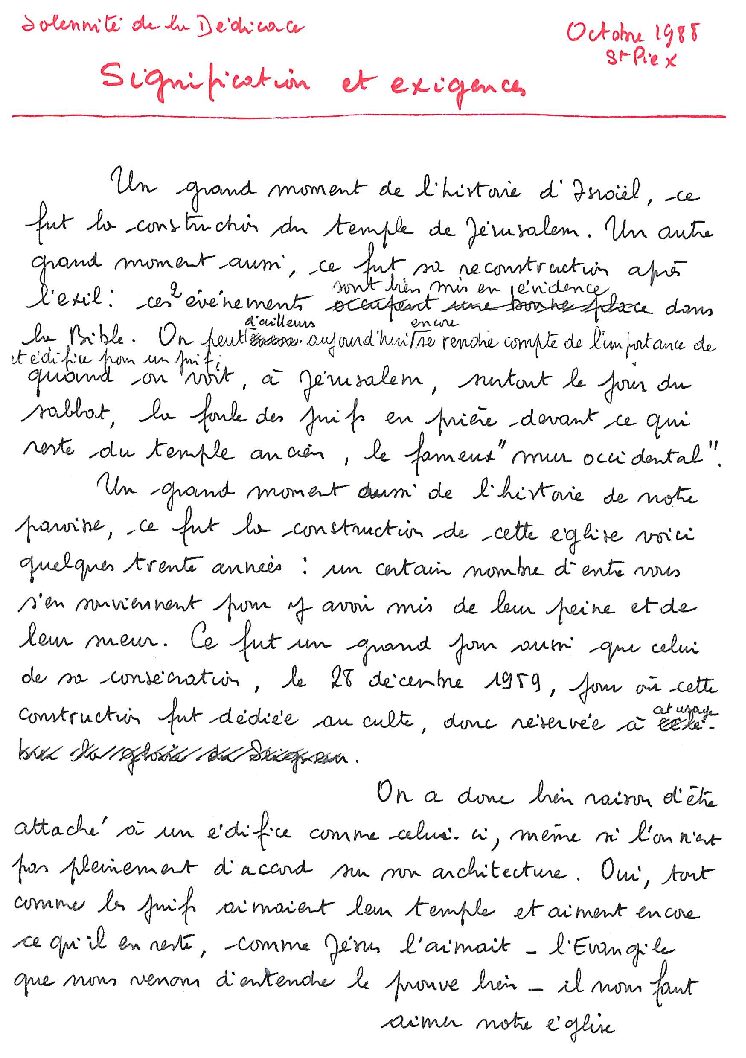 Solennité de la Dédicace
Octobre 1988
St Pie X
Signification et exigences
Un grand moment de l'histoire d'Israël, ce
fut la construction du temple de Jérusalem. Un autre
grand moment aussi, ce fut sa reconstruction après
sont bien mis en évidence
l'exil : ces 2 événements occupent une bonne place dans
d'ailleurs encore
la Bible. On peut aujourd'hui se rendre compte de l'importance de
cet édifice pour un juif,
quand on voit, à Jérusalem, surtout le jour du
sabbat, la foule des juifs en prière devant ce qui
reste du temple ancien, le fameux "mur occidental".
Un grand moment aussi de l'histoire de notre
paroisse, ce fut la construction de cette église voici
quelques trente années : un certain nombre d'entre vous
s'en souviennent pour y avoir mis de leur peine et de
leur sueur. Ce fut un grand jour aussi que celui
de sa consécration, le 28 décembre 1959, jour où cette
construction fut dédiée au culte, donc réservée à
cet usage
la gloire du Seigneur.
On a donc bien raison d'être
attaché à un édifice comme celui-ci, même si l'on n'est
pas pleinement d'accord sur son architecture. Oui, tout
comme les juifs aimaient leur temple et aiment encore
ce qu'il en reste, comme Jésus l'aimait - l'Evangile
que nous venons d'entendre le prouve bien - il nous faut
aimer notre église